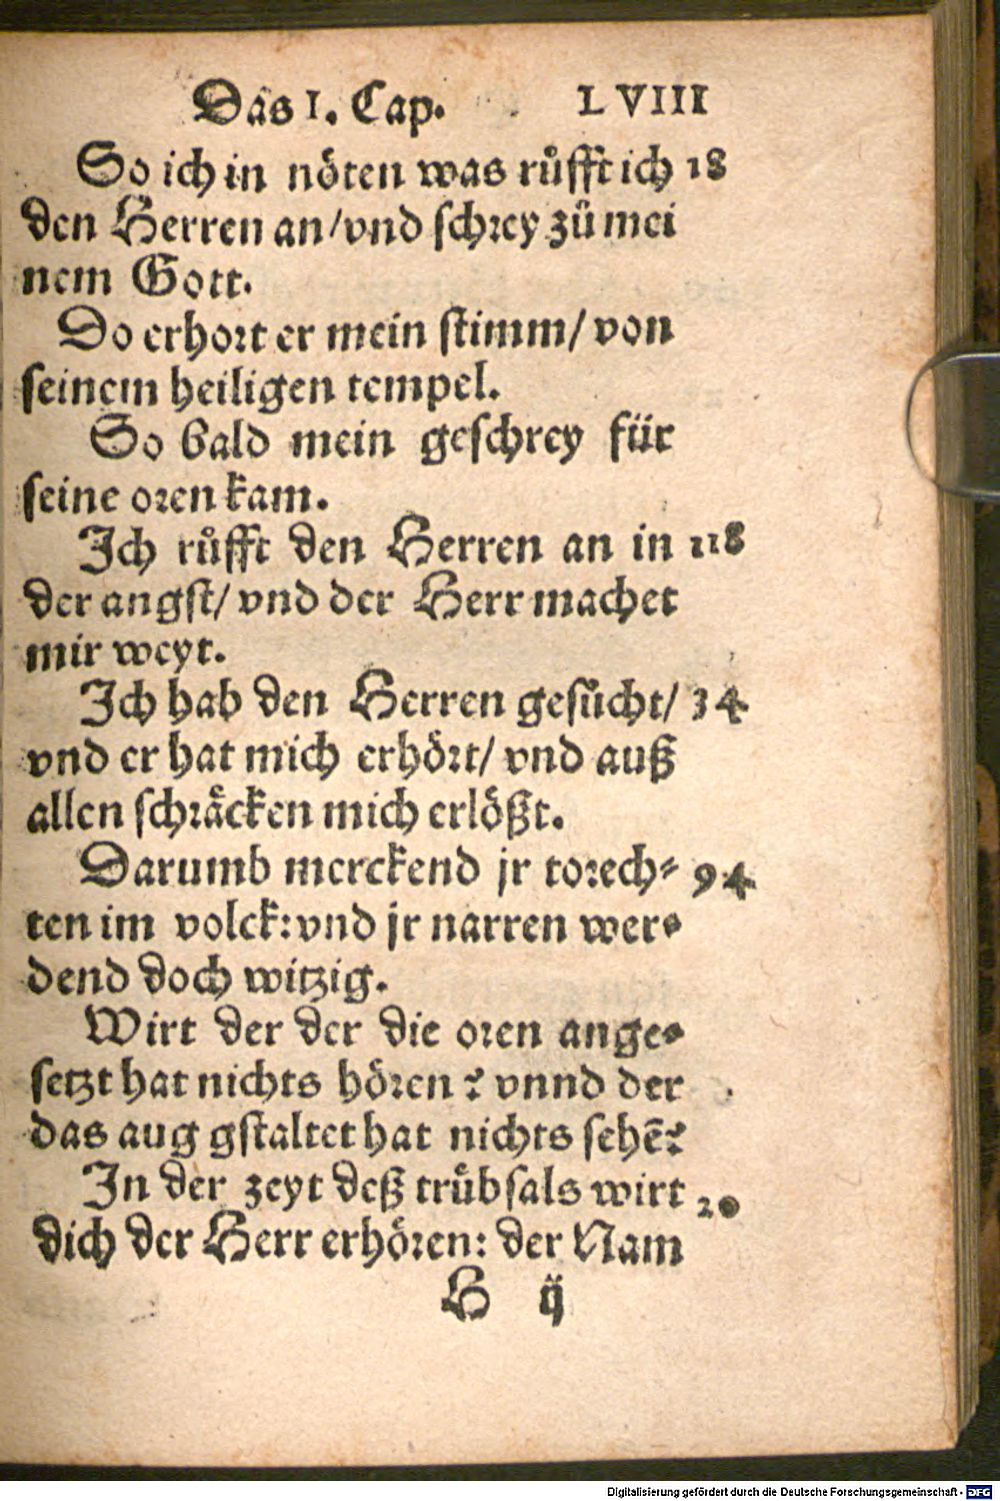 Das I. Cap. LVIII
So ich in nöten was růfft ich 18
den Herren an/vnd schrey zů mei
nem Gott.
Do erhort er mein stimm/ von
seinem heiligen tempel.
So bald mein geschrey für
seine oren kam.
Ich růfft den Herren an in 118
der angst/ vnd der Herr machet
mir weyt.
Ich hab den Herren gesůcht/ 34
vnd er hat mich erhört/ vnd auß
allen schräcken mich erlößt.
Darumb merckend jr torech⸗ 94
ten im volck: vnd jr narren wer⸗
dend doch witzig.
Wirt der der die oren ange⸗
setzt hat nichts hören? vnnd der
das aug gstaltet hat nichts sehē?
In der zeyt deß trůbsals wirt 20
dich der Herr erhören: der Nam
H ij
Digitalisierung gefördert durch die Deutsche Forschungsgemeinschaft - DFG